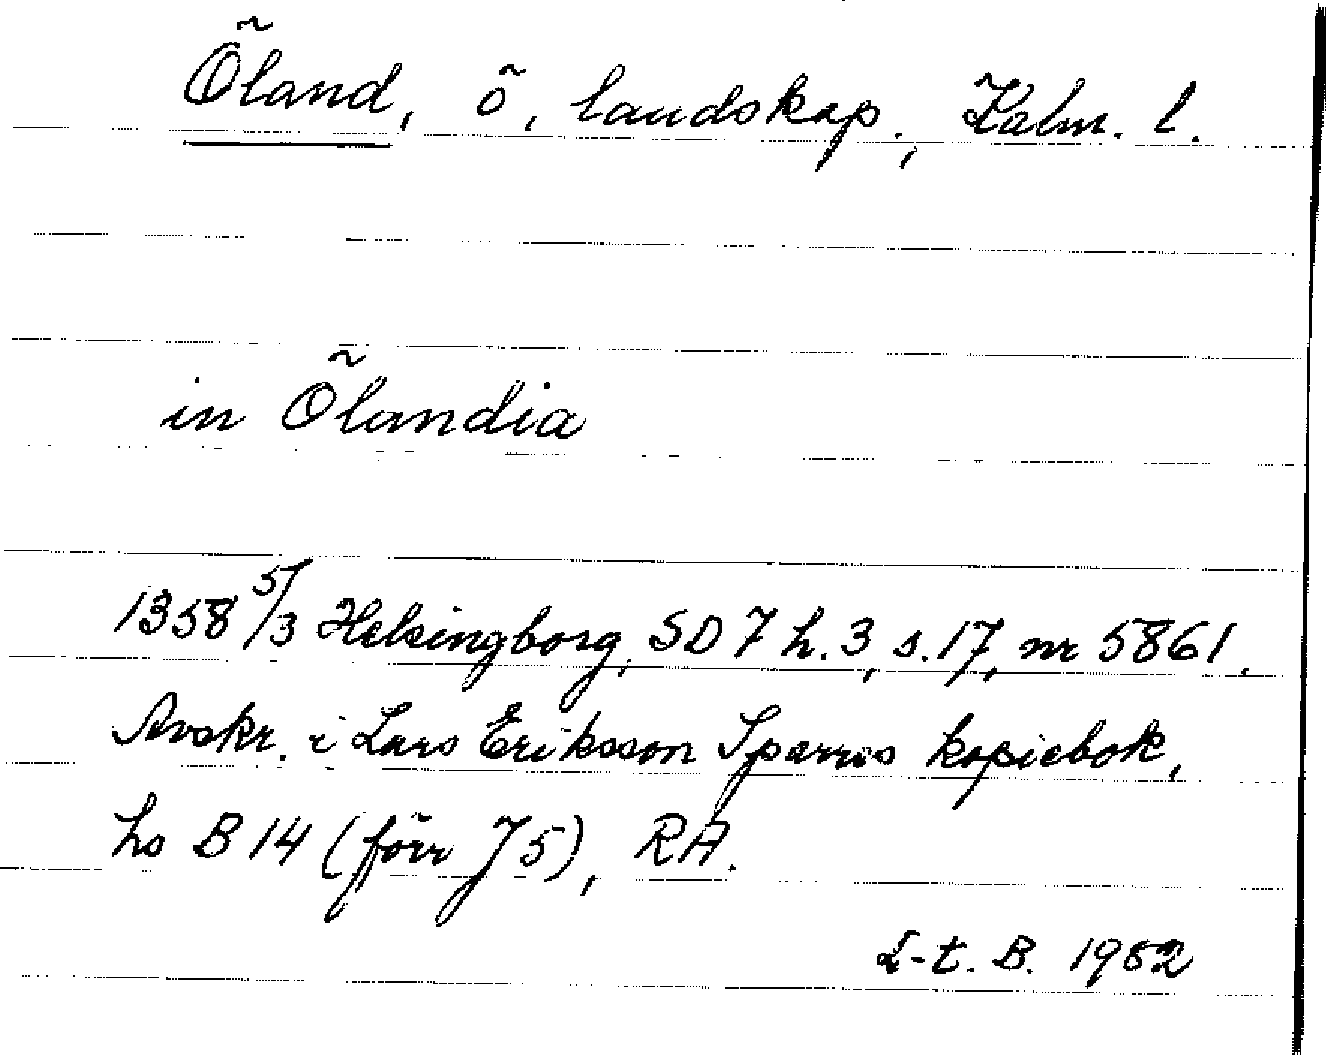 Öland, ö, landskap., Kalm. l.
in Ölandia
1358 5/3 Helsingborg, SD 7 h. 3, s. 17, nr 5861.
Avskr. i Lars Eriksson Sparres kopiebok,
hs B 14 (förr J 5), RA.
L-t. B. 1982